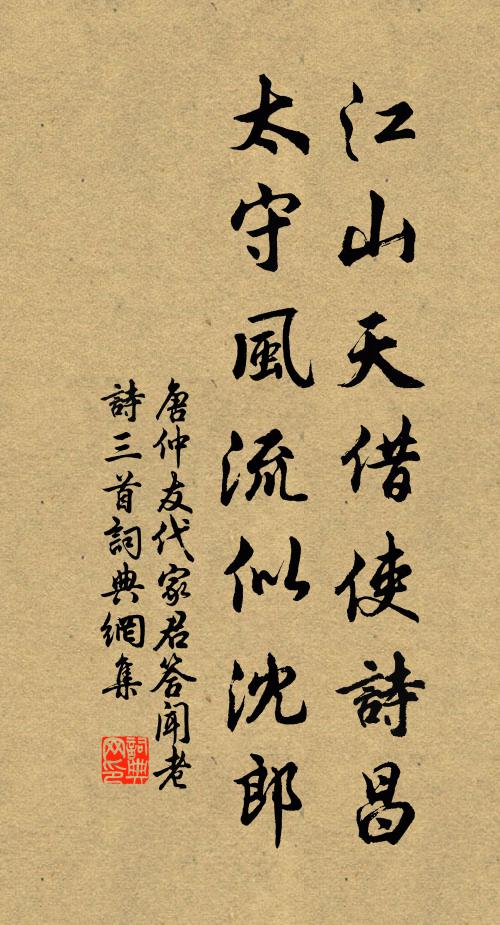 江山天借使詩昌
太守風流似沈郎
唐仲友代家君答聞老
詩三首詞典網集
詞典网印